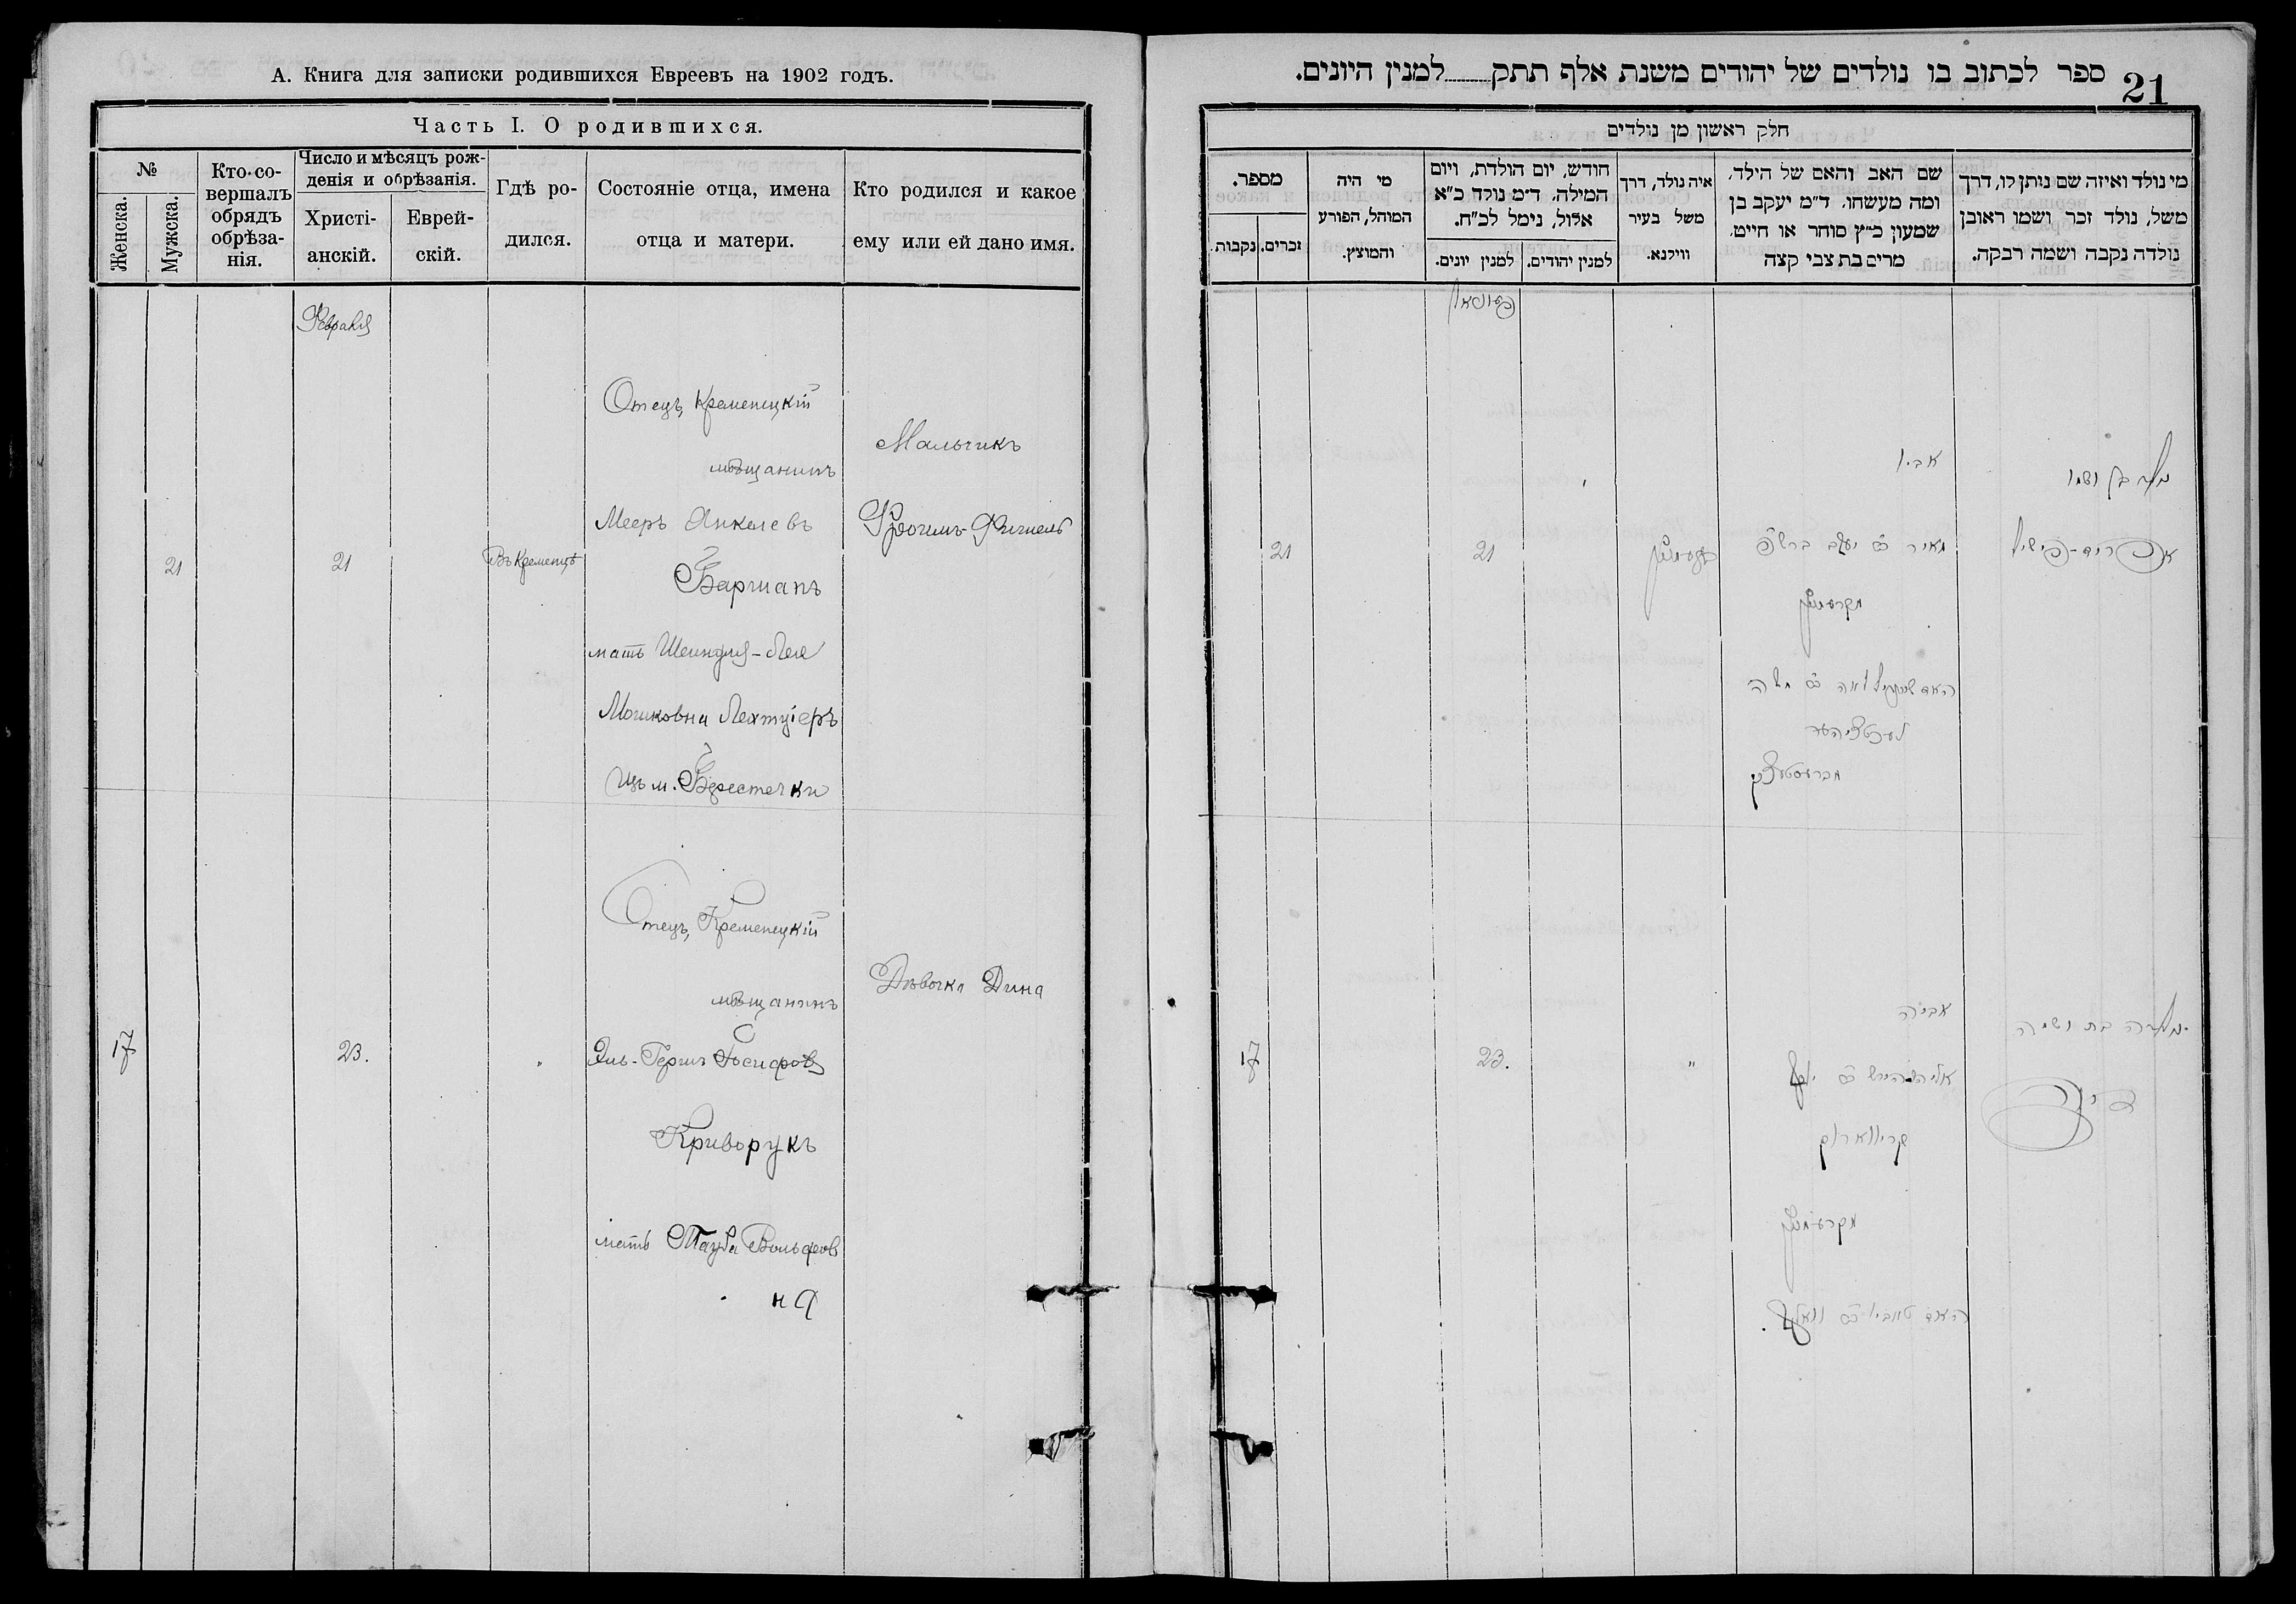 А. Книга для записки родившихся Евреевъ на 1902 годъ.
Часть I. О родившихся.
№
Женска.
Мужска.
Кто со-
вершалъ
обрядъ
обрѣза-
нія.
Число и мѣсяцъ рож-
денія и обрѣзанія.
Христі-
анскій.
Еврей-
скій.
Гдѣ ро-
дился.
Состояніе отца, имена
отца и матери.
Кто родился и какое
ему или ей дано имя.
Февраля
21
21
Въ Кременцѣ
Отецъ, Кременецкій
мѣщанинъ
Мееръ Янкелевъ
Баршапъ
мать Шейндля-Лея
Мошковна
Изъ м. Берестечки
Мальчикъ
Фроимъ-Фишель
17
23.
"
Отецъ, Кременецкій
мѣщанинъ
Эль-Герш Іосифовъ
Криворукъ
мать Тауба Вольфов
на
Дѣвочка Дина
ספר לכתוב בו נולדים של יהודים משנת אלף תתק למנין היונים.
21
חלק ראשון מן נולדים
מי נולד ואיזה שם ניתן לו, דרך
משל, נולד זכר ושמו ראובן
נולדה נקבה ושמה רבקה.
שם האב והאם של הילד.
ומה מעשהו. ד"מ יעקב בן
שמעון כ"ץ סוחר או חייט.
מרים בת צבי קצה
איה נולד, דרך
משל בעיר
ווילנא.
חודש, יום הולדת, ויום
המילה. ד"מ נולד כ"א
אלול, נימל לכ"ח.
למנין יהודים.
למנין יונים.
מי היה
המוהל, הפורע
והמוצץ.
מספר.
זכרים.
נקבות.
נולד בן ושמו
אפרים-פישיל
אביו
מאיר יעקב
מקרעמניץ
האם שיינדיל לאה משה
מברעסטעצקי
קרעמניץ
21
21
נולדה בת ושמה
דינה
אביה
אליהו הירש יוסף
קריווארוק
מקרעמניץ
האם טויבי וואלף.
"
23.
17